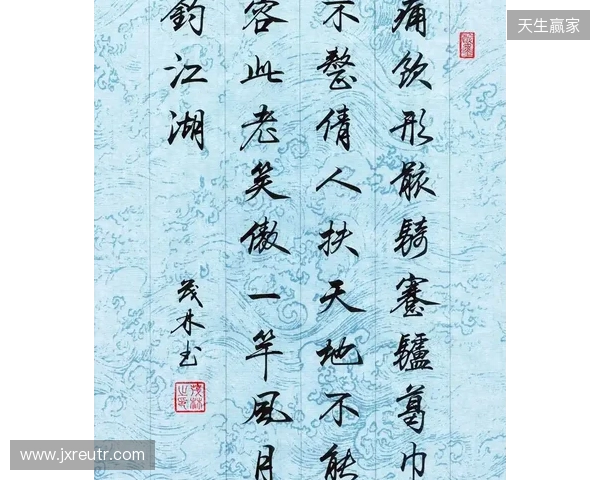 天生赢家
痛飲形骸騎蹇驢葛巾
不整倩人扶天地不能
容此老笑傲一竿風月
釣江湖
茂林书
www.jxreutr.com